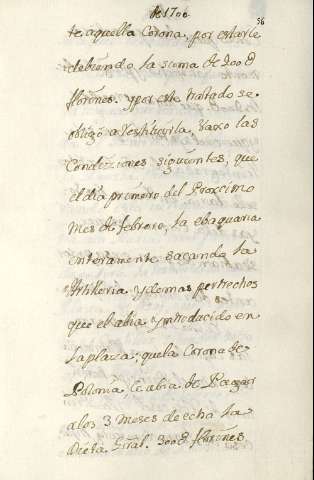 de 1700
56
te aquella Corona, por estarle
debiendo la suma de 200 @
florines. y por este tratado se
obligó a restituirla, vaxo las
Condiziones siguientes, que
el dia primero del Proxcimo
Mes de febrero, la ebaquaria
enteramente sacando la
Artilleria y demas pertrechos
que el abia yntroducido en
la plaza; que la Corona de
Polonia le abia de Pagar
a los 3 Meses de echa la
Dieta Gràl. 300 @ florines